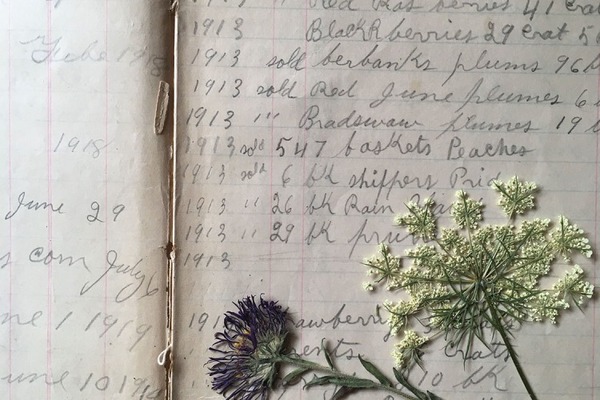 1918
1918
June 29
corn July 6
1 1919
June 10 1919
1913 " Red Ras berries 41 crat
1913 BlackRberries 29 Crat
1913 sold berbanks plums 96
1913 sold Red June plumes 6
1913 " Bradswaw plumes 19
1913 sold 547 baskets Peaches
1913 sold 6 bk shiffers Prid
1913 " 26 bk Rain
1913 " 29 bk prun
1913
191 awberri
ents Crats
10 bk